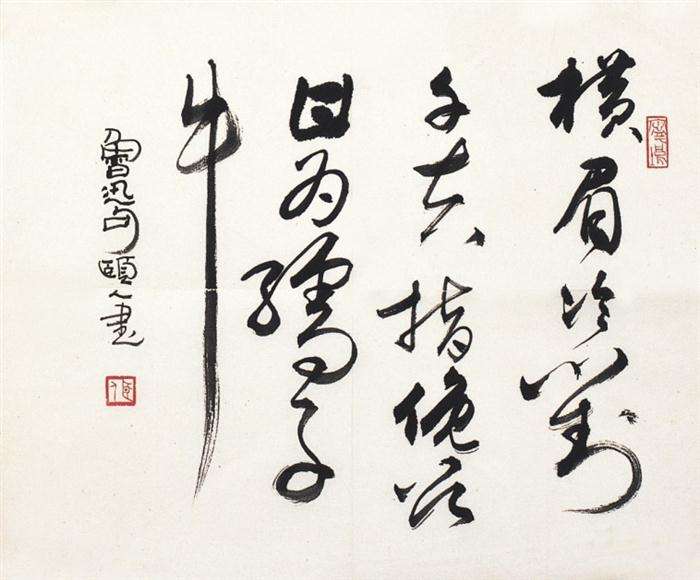 横眉冷對
千夫指俛首
甘为孺子
牛
魯迅句頤人書